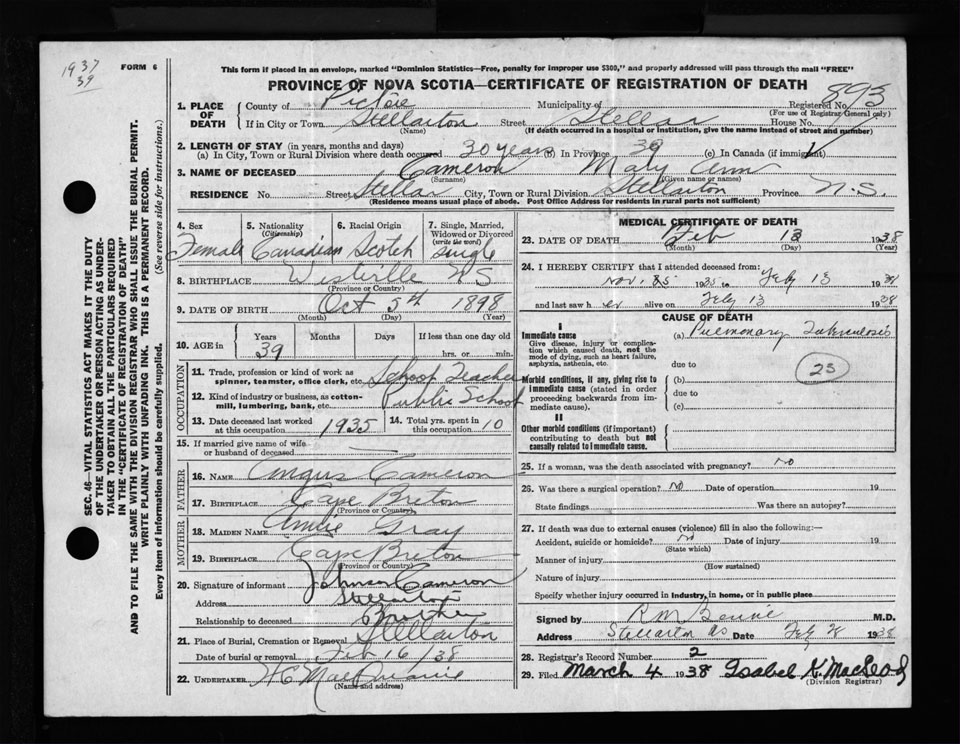 1937
39
FORM 6
This form if placed in an envelope, marked "Dominion Statistics—Free, penalty for improper use $300," and properly addressed will pass through the mail "FREE"
PROVINCE OF NOVA SCOTIA—CERTIFICATE OF REGISTRATION OF DEATH
893
1. PLACE OF DEATH
County of Pictou Municipality of Registered No.
(For use of Registrar General only)
If in City or Town Stellarton Street Stellar House No.
(Name) (If death occurred in a hospital or institution, give the name instead of street and number)
2. LENGTH OF STAY (in years, months and days)
(a) In City, Town or Rural Division where death occurred 30 years (b) In Province 39 (c) In Canada (if immigrant)
3. NAME OF DECEASED Cameron Mary Ann
(Surname) (Given name or names)
RESIDENCE No. Street Stellar City, Town or Rural Division Stellarton Province N.S.
(Residence means usual place of abode. Post Office Address for residents in rural parts not sufficient)
4. Sex 5. Nationality (Citizenship) 6. Racial Origin 7. Single, Married, Widowed or Divorced (write the word)
Female Canadian Scotch Single
8. BIRTHPLACE Westville NS
(Province or Country)
9. DATE OF BIRTH Oct 5th 1898
(Month) (Day) (Year)
10. AGE in Years Months Days If less than one day old
39 hrs. or min.
OCCUPATION
11. Trade, profession or kind of work as spinner, teamster, office clerk, etc. School Teacher
12. Kind of industry or business, as cotton-mill, lumbering, bank, etc. Public School
13. Date deceased last worked at this occupation 1935 14. Total yrs. spent in this occupation 10
15. If married give name of wife or husband of deceased
FATHER
16. NAME Angus Cameron
17. BIRTHPLACE Cape Breton
(Province or Country)
MOTHER
18. MAIDEN NAME Annie Gray
19. BIRTHPLACE Cape Breton
(Province or Country)
20. Signature of informant Johnson Cameron
Address Stellarton
Relationship to deceased Brother
21. Place of Burial, Cremation or Removal Stellarton
Date of burial or removal Feb 16/38
22. UNDERTAKER
(Name and address)
MEDICAL CERTIFICATE OF DEATH
23. DATE OF DEATH Feb 13 1938
(Month) (Day) (Year)
24. I HEREBY CERTIFY that I attended deceased from:
Nov. 25 1935 to Feby 13 1938
and last saw her alive on Feby 13 1938
CAUSE OF DEATH
I
Immediate cause
Give disease, injury or complication which caused death, not the mode of dying, such as heart failure, asphyxia, asthenia, etc.
(a) Pulmonary Tuberculosis
due to
23
Morbid conditions, if any, giving rise to immediate cause (stated in order proceeding backwards from immediate cause).
(b)
due to
(c)
II
Other morbid conditions (if important) contributing to death but not causally related to immediate cause.
25. If a woman, was the death associated with pregnancy? No
26. Was there a surgical operation? No Date of operation 19
State findings Was there an autopsy?
27. If death was due to external causes (violence) fill in also the following:—
Accident, suicide or homicide? No Date of injury 19
(State which)
Manner of injury
(How sustained)
Nature of injury
Specify whether injury occurred in industry, in home, or in public place
Signed by M.D.
Address Stellarton NS Date Feby 28 1938
28. Registrar's Record Number 2
29. Filed March 4 1938 Isabel K. MacLeod
(Division Registrar)
SEC. 46—VITAL STATISTICS ACT MAKES IT THE DUTY
OF THE UNDERTAKER OR PERSON ACTING AS UNDERTAKER TO OBTAIN ALL THE PARTICULARS REQUIRED
IN THE "CERTIFICATE OF REGISTRATION OF DEATH"
AND TO FILE THE SAME WITH THE DIVISION REGISTRAR WHO SHALL ISSUE THE BURIAL PERMIT.
WRITE PLAINLY WITH UNFADING INK. THIS IS A PERMANENT RECORD.
Every item of information should be carefully supplied. (See reverse side for instructions.)